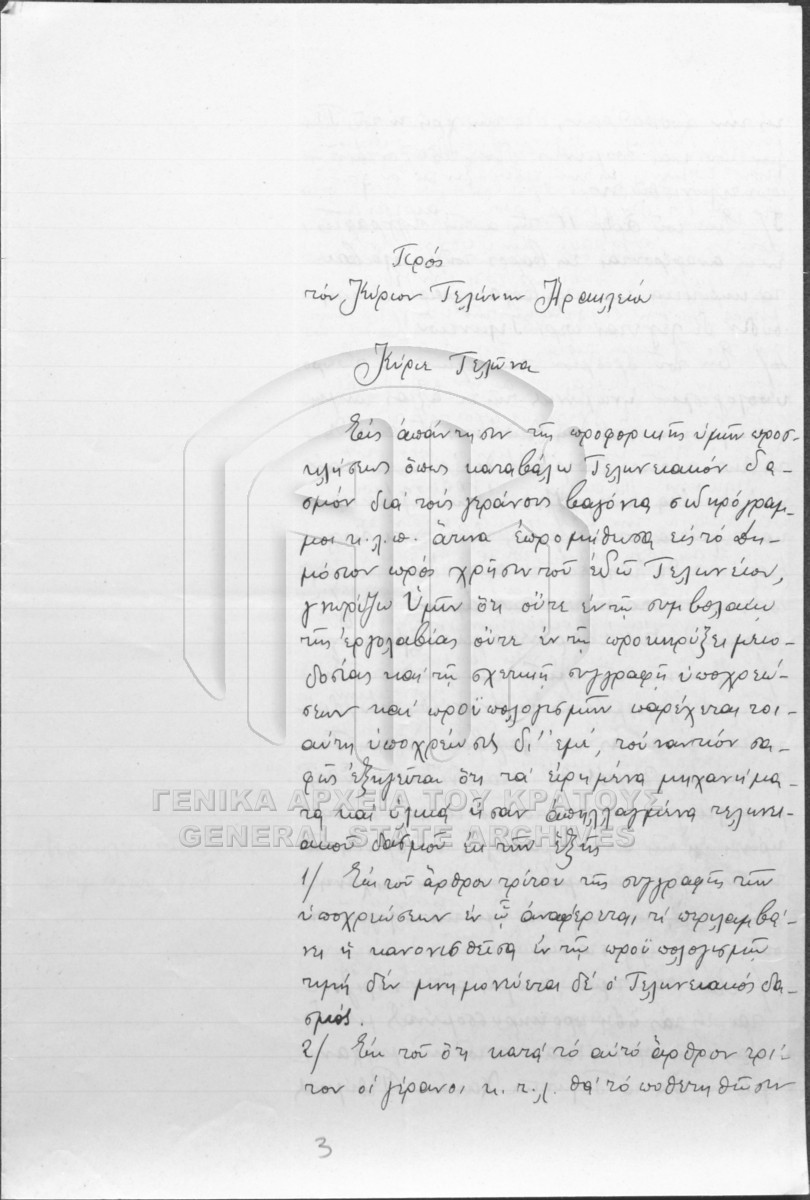 Πρός
τόν Κύριον Τελώνην Ἡρακλείου
Κύριε Τελῶνα
Εἰς ἀπάντησιν τῆς προφορικῆς ὑμῶν προσ-
κλήσεως ὅπως καταβάλω Τελωνειακόν δα-
σμόν διά τούς γερανούς βαγόνια σιδηρόγραμ-
μοι κ.λ.π. ἅτινα ἐπρομήθευσα εἰς τό Δη-
μόσιον πρός χρῆσιν τοῦ ἐδῶ Τελωνείου,
γνωρίζω Ὑμῖν ὅτι οὔτε ἐν τῷ συμβολαίῳ
τῆς ἐργολαβίας οὔτε ἐν τῇ προκηρύξει μειο-
δοσίας καί τῇ σχετικῇ συγγραφῇ ὑποχρεώ-
σεων καί προϋπολογισμῶν παρέχεται τοι-
αύτη ὑποχρέωσις δι' ἐμέ, τοὐναντίον σα-
φῶς ἐξηγεῖται ὅτι τά εἰρημένα μηχανήμα-
τα καί ὑλικά ἦσαν ἀπηλλαγμένα τελωνει-
ακοῦ δασμοῦ ἐκ τῶν ἑξῆς
ΓΕΝΙΚΑ ΑΡΧΕΙΑ ΤΟΥ ΚΡΑΤΟΥΣ
GENERAL STATE ARCHIVES
1/ Ἐκ τοῦ ἄρθρου τρίτου τῆς συγγραφῆς τῶν
ὑποχρεώσεων ἐν ᾧ ἀναφέρεται τί περιλαμβά-
νει ἡ κανονισθεῖσα ἐν τῷ προϋπολογισμῷ
τιμή δέν μνημονεύεται δέ ὁ Τελωνειακός δα-
σμός.
2/ Ἐκ τοῦ ὅτι κατά τό αὐτό ἄρθρον τρί-
τον οἱ γερανοί κ.τ.λ. θά τοποθετηθῶσιν
3